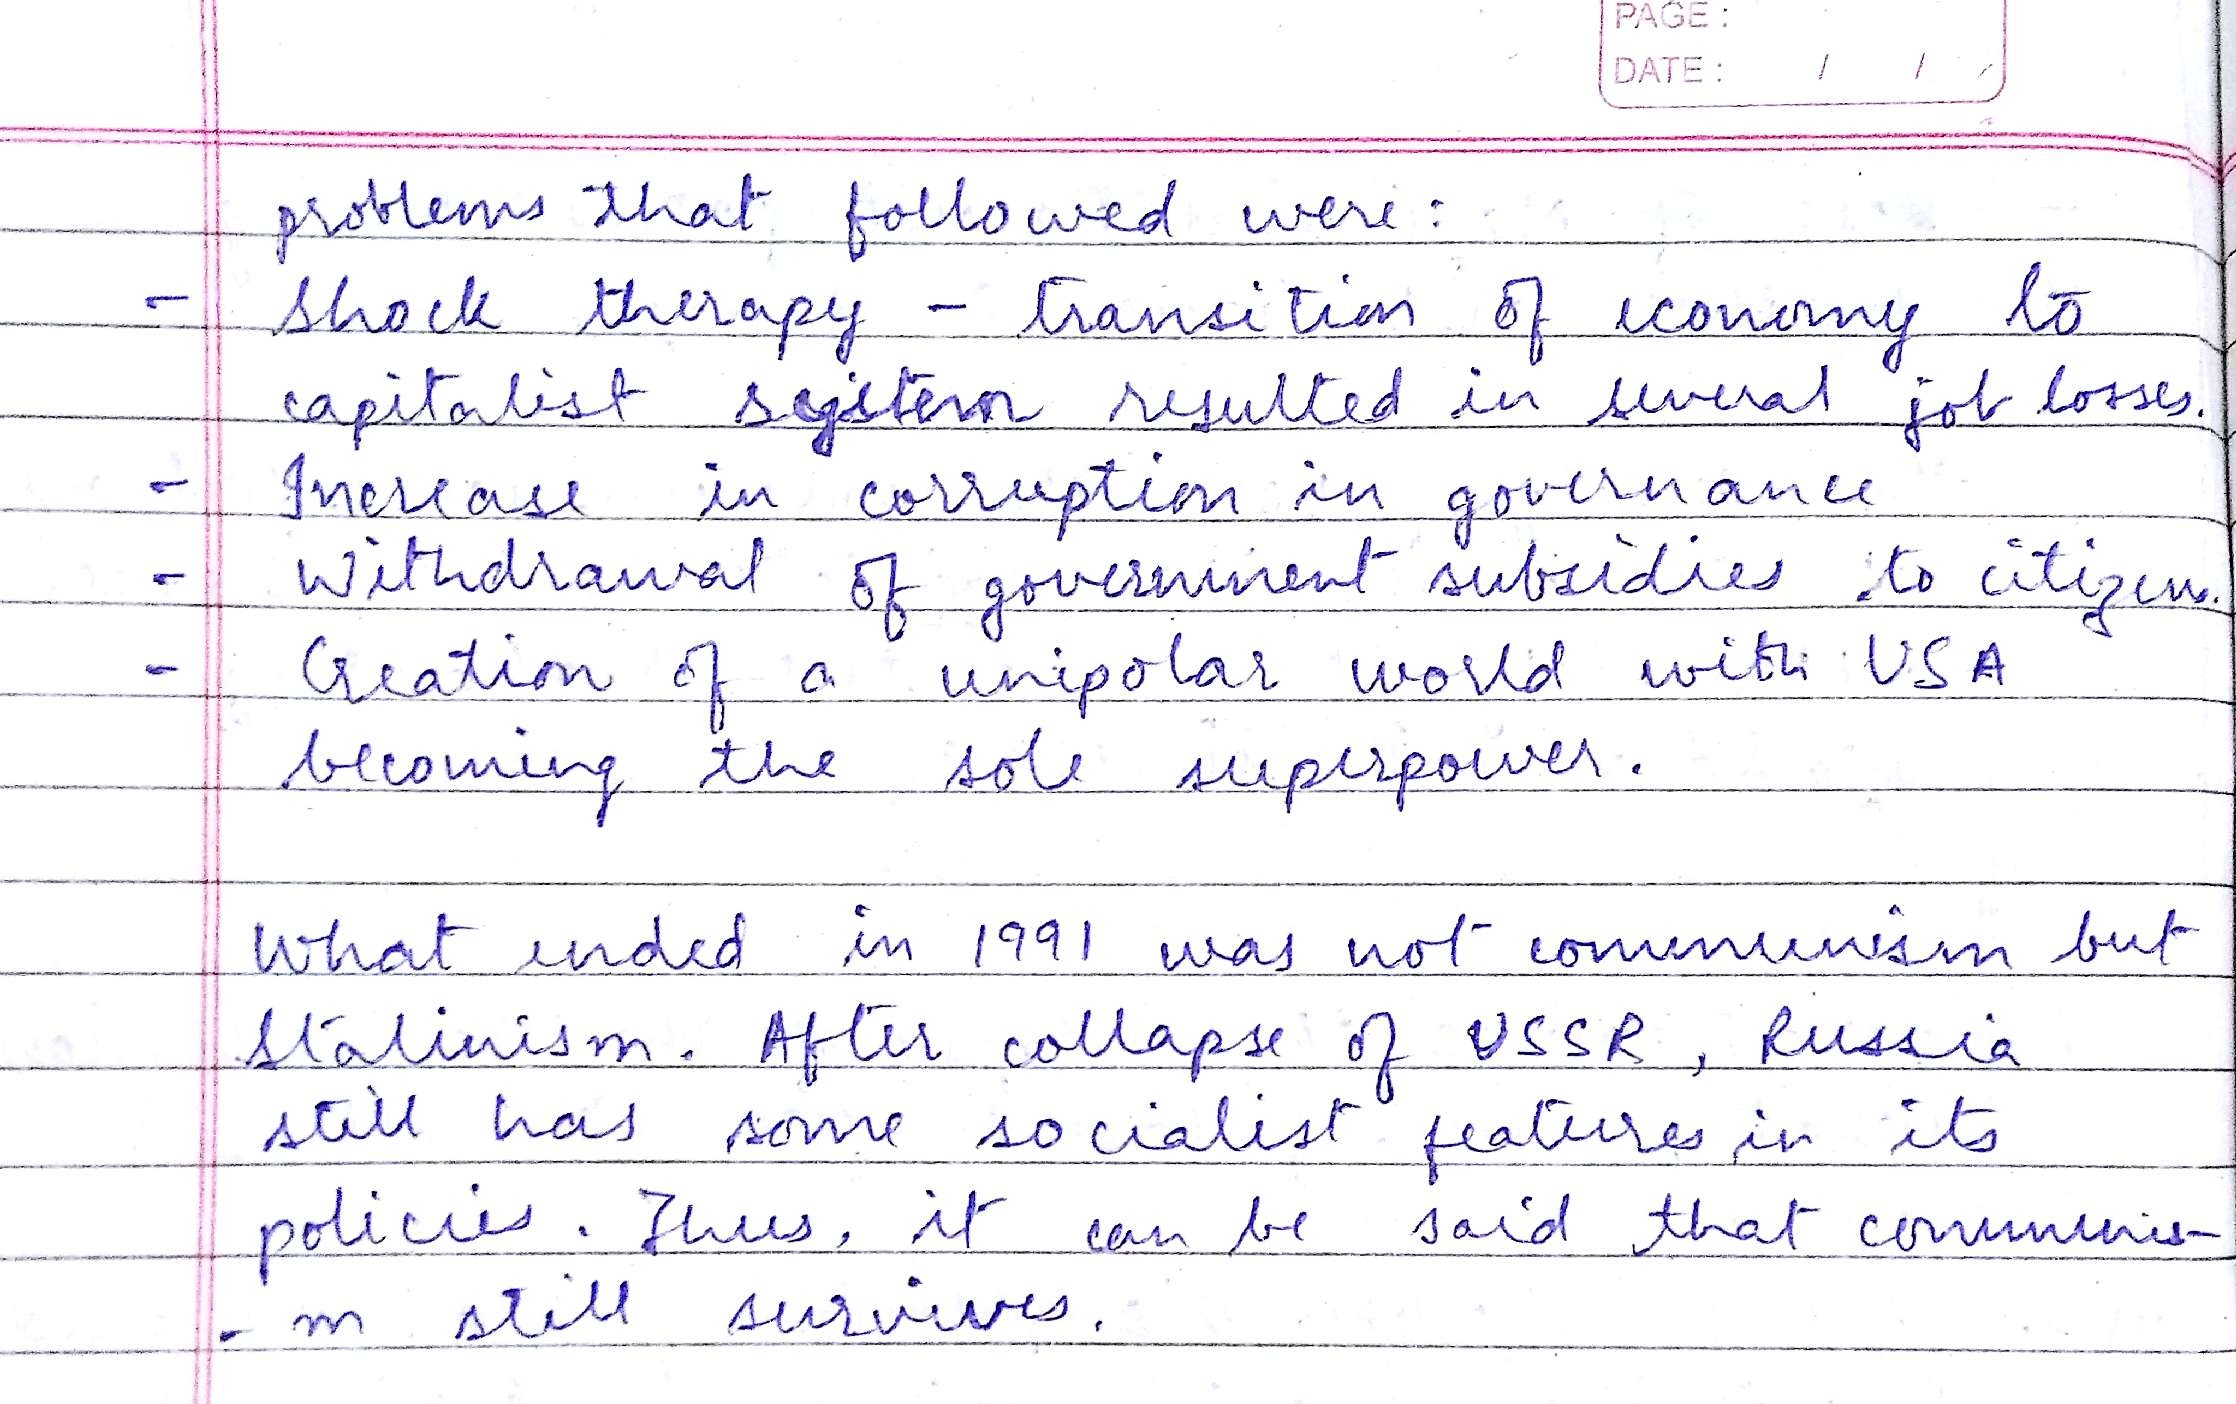 PAGE :
DATE : / /
problems that followed were :
- Shock therapy - transition of economy to
capitalist system resulted in several job losses.
- Increase in corruption in governance
- Withdrawal of government subsidies to citizens.
- Creation of a unipolar world with USA
becoming the sole superpower.
What ended in 1991 was not communism but
Stalinism. After collapse of USSR, Russia
still has some socialist features in its
policies. Thus, it can be said that communis-
- m still survives.